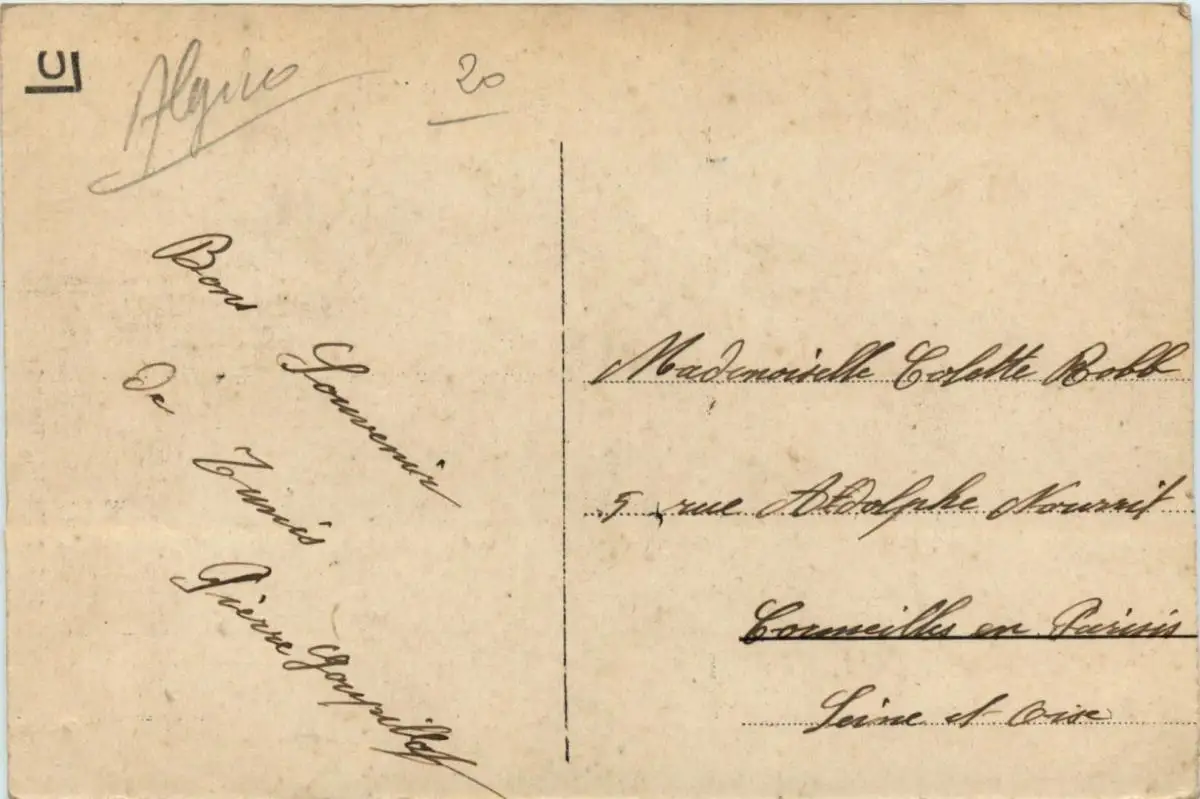 20
Bons
Souvenir
De
Tunis
Pierre Goupillot
Mademoiselle Colette Robb
5 rue Adolphe Nourrit
Cormeilles en Parisis
Seine et Oise